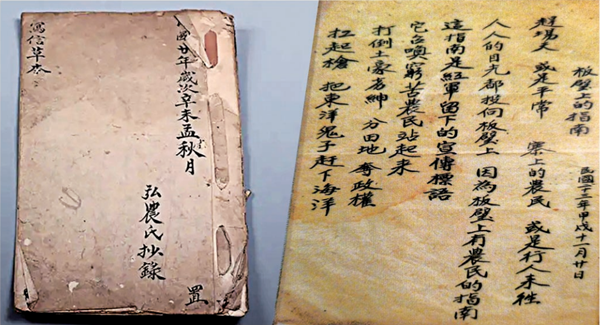 民國廿年歲次辛未孟秋月
置
弘農氏抄錄
寫信草本
板壁上的指南 民國二十三年甲戌十一月廿日
趕場天 或是平常 寨上的農民 或是行人來往
人人的目光都投向板壁上 因為板壁上有農民的指南
這指南是紅軍留下的宣傳標語
它召喚窮苦農民站起來
打倒土豪劣紳 分田地 奪政權
扛起槍 把東洋鬼子趕下海洋